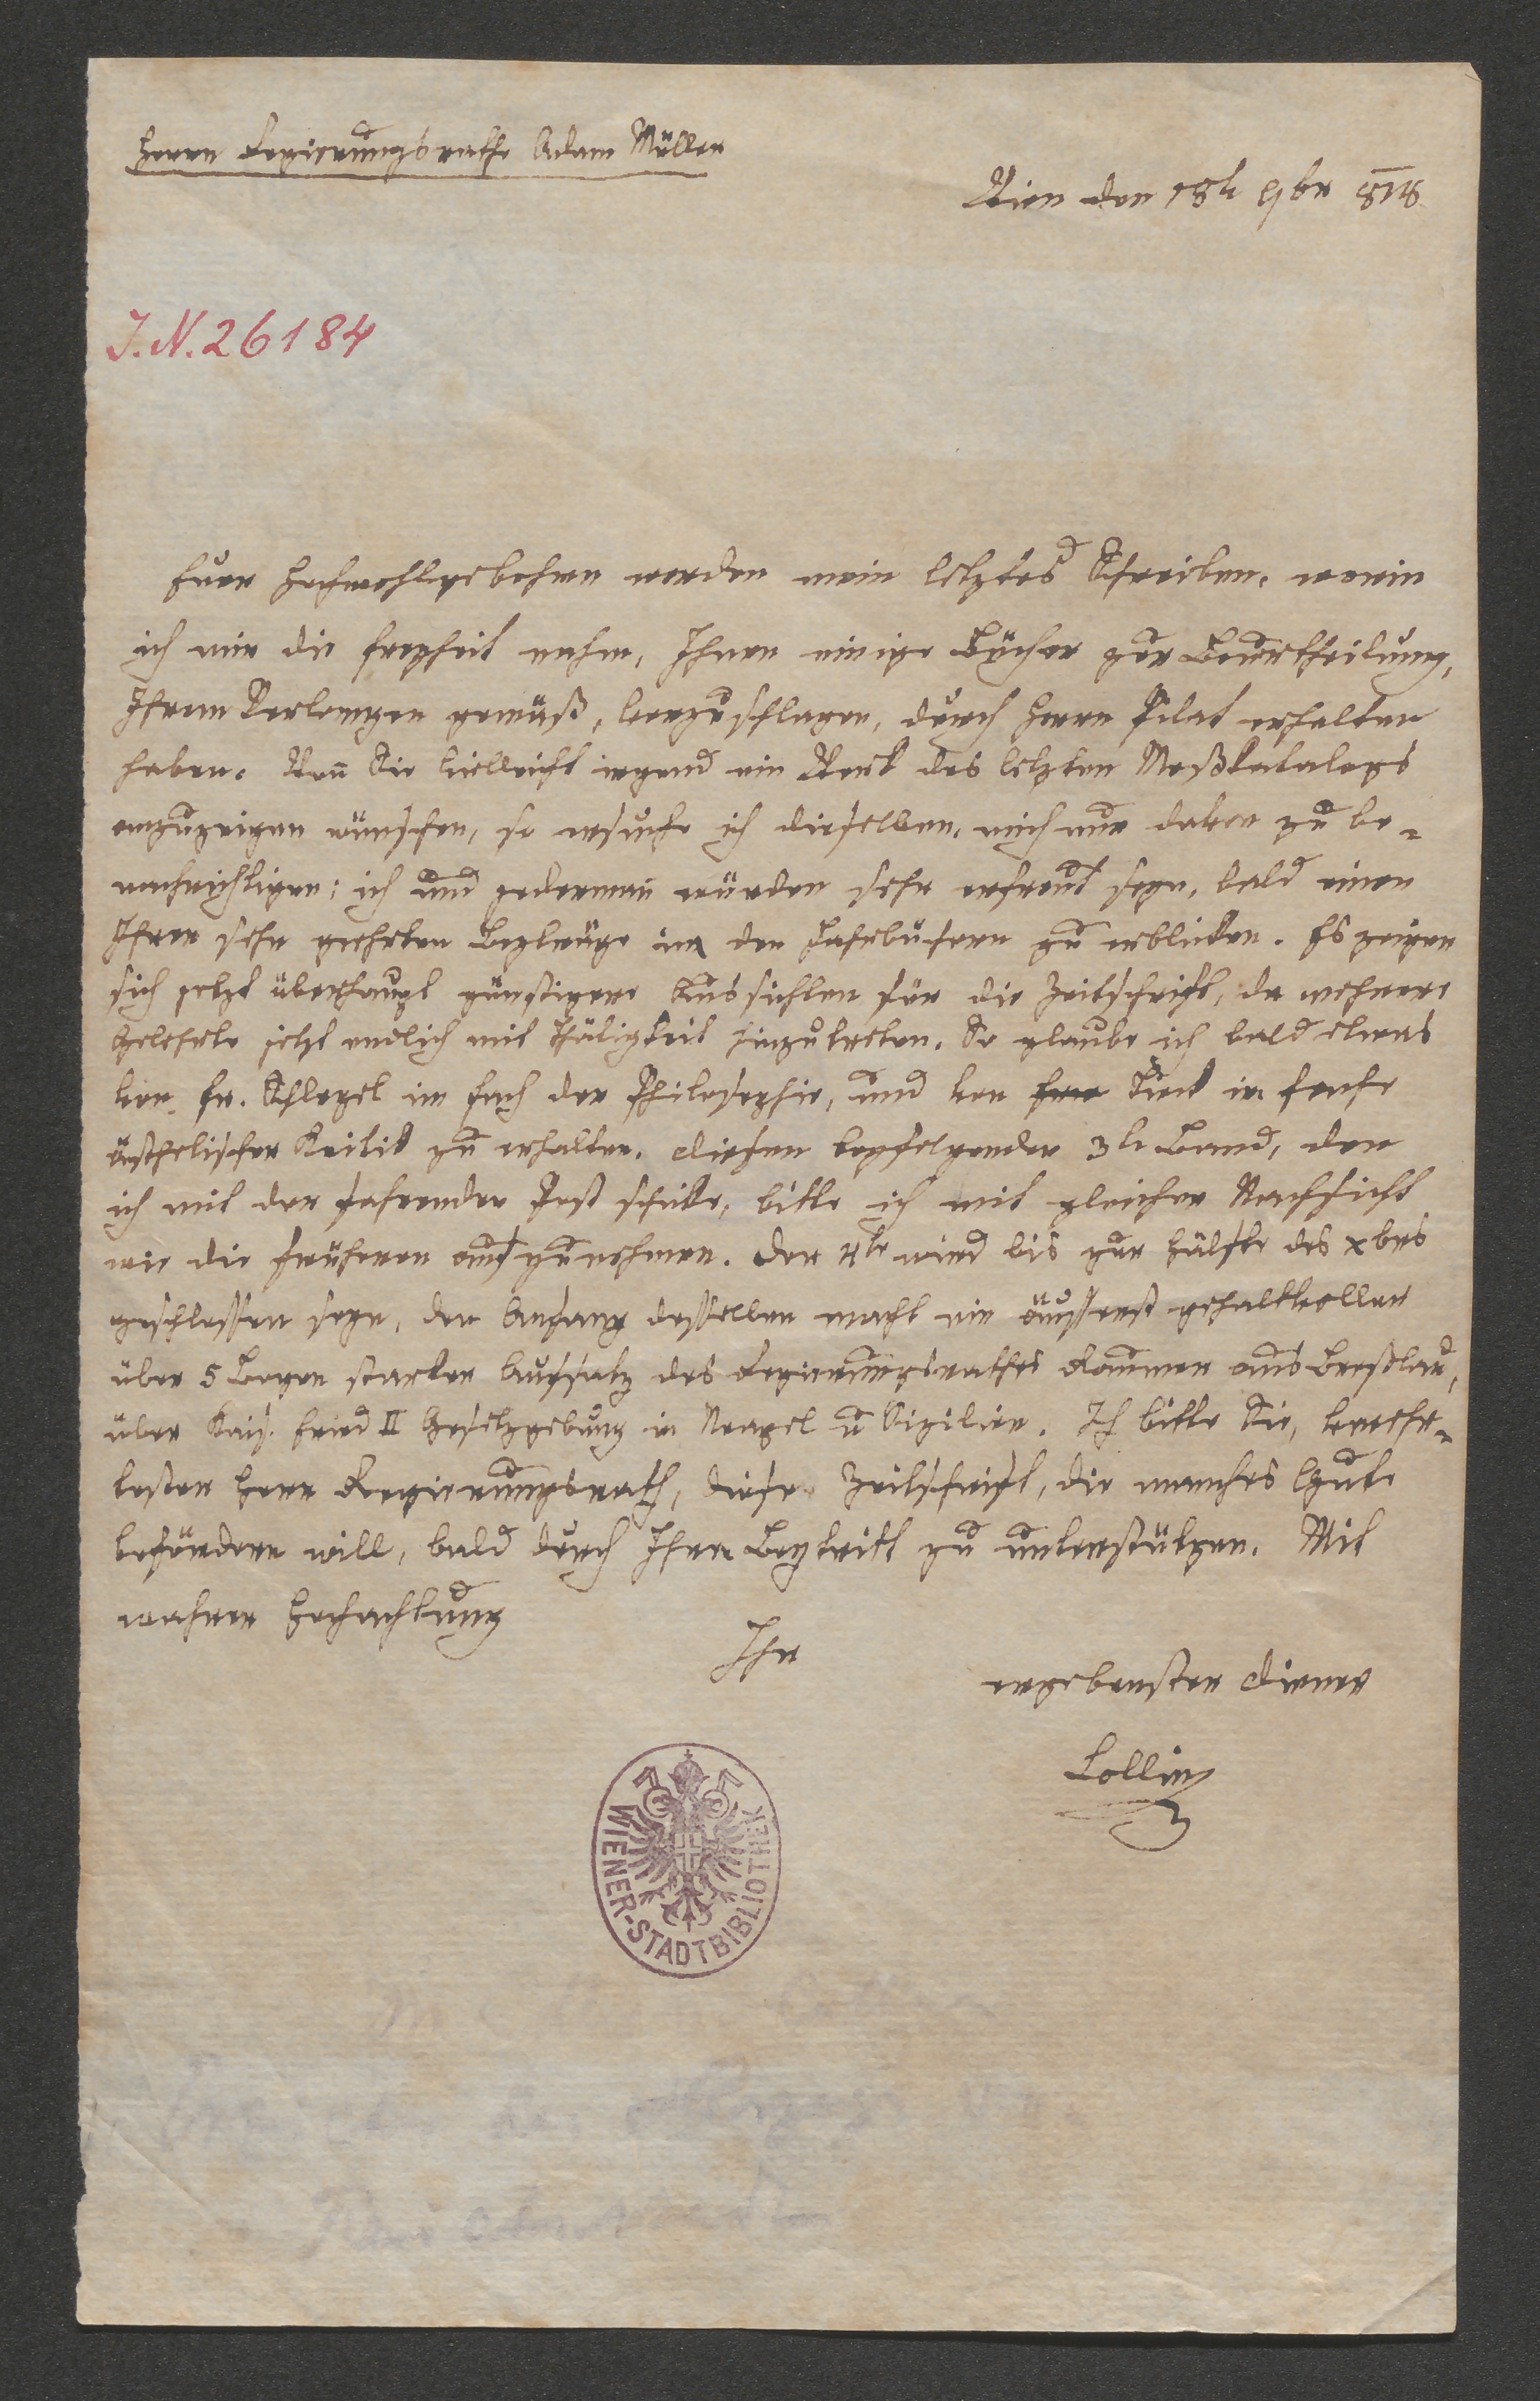 Herrn Regierungsrathe Adam Müller
Wien den 18t 9br 818
J.N. 26184
Euer Hochwohlgebohren werden mein letztes Schreiben, worin
ich mir die Freyheit nahm, Ihnen einige Bücher zur Beurtheilung,
Ihrem Verlangen gemäß, vorzuschlagen, durch Herrn Pilat erhalten
haben. Weñ Sie vielleicht irgend ein Werk des letzten Meßkatalogs
anzuzeigen wünschen, so ersuche ich dieselben, mich nur davon zu be-
nachrichtigen; ich und jedermañ würden sehr erfreut seyn, bald einen
Ihrer sehr geehrten Beyträge in den Jahrbüchern zu erblicken. Es zeigen
sich jetzt überhaupt günstigere Aussichten für die Zeitschrift, da mehrere
Gelehrte jetzt endlich mit Thätigkeit hinzutreten. So glaube ich bald etwas
von Fr. Schlegel im Fach der Philosophie, und von Tieck im Fache
ästhetischer Kritik zu erhalten. Diesen beyfolgenden 3t Band, den
ich mit der fahrenden Post schicke, bitte ich mit gleicher Nachsicht
wie die früheren aufzunehmen. Der 4te wird bis zur Hälfte des xbrs
geschlossen seyn, den Anfang desselben macht ein äusserst gehaltvoller
über 5 Bogen starker Aufsatz des Regierungsrathes Raumer aus Breßlau,
über Kais. Fried II Gesetzgebung in Neapel u Sizilien. Ich bitte Sie, verehr-
tester Herr Regierungsrath, diese Zeitschrift, die manches Gute
befördern will, bald durch Ihren Beytritt zu unterstützen. Mit
wahrer Hochachtung
Ihr
ergebenster Diener
Collin
WIENER-STADTBIBLIOTHEK